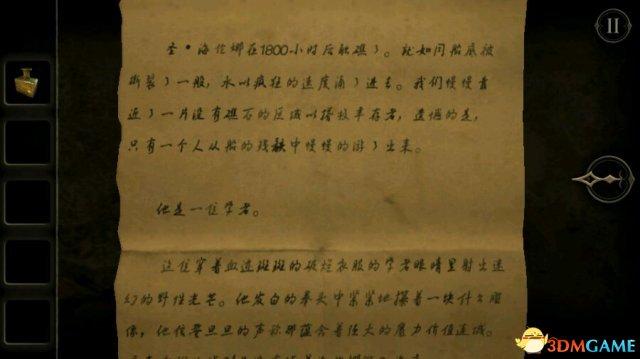 圣·海伦娜在1800小时后触礁了。就如同船底被
撕裂了一般，水以疯狂的速度涌了进去。我们慢慢靠
近了一片没有礁石的区域以搭救幸存者，遗憾的是，
只有一个人从船的残骸中慢慢的游了出来。
他是一位学者。
这位穿着血迹斑斑的破烂衣服的学者眼睛里射出迷
幻的野性光芒。他发白的拳头中紧紧地攥着一块什么雕
像，他信誓旦旦的声称那蕴含着巨大的魔力价值连城。
3DMGAME